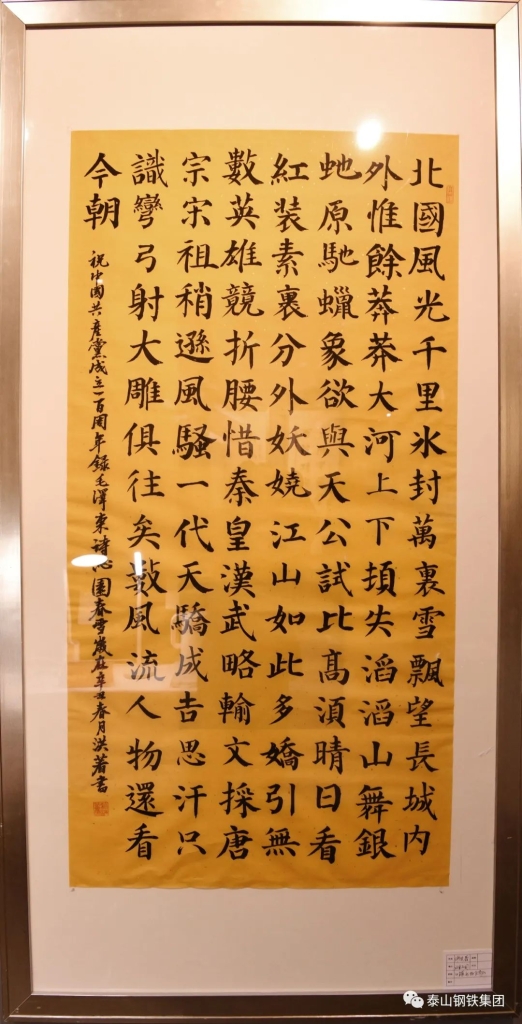 北國風光千里氷封萬裏雪飄望長城内
外惟餘莽莽大河上下頓失滔滔山舞銀
虵原馳蠟象欲與天公試比髙須晴日看
紅装素裹分外妖嬈江山如此多嬌引無
數英雄競折腰惜秦皇漢武略輸文採唐
宗宋祖稍遜風騷一代天驕成吉思汗只
識彎弓射大雕俱往矣數風流人物還看
今朝
祝中國共産黨成立一百周年錄毛澤東詩沁園春雪歲在辛丑春月洪著書
泰山钢铁集团